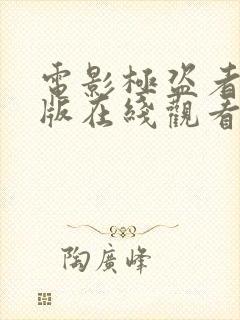 電影極盜者
版在綫觀看
陶廣峰